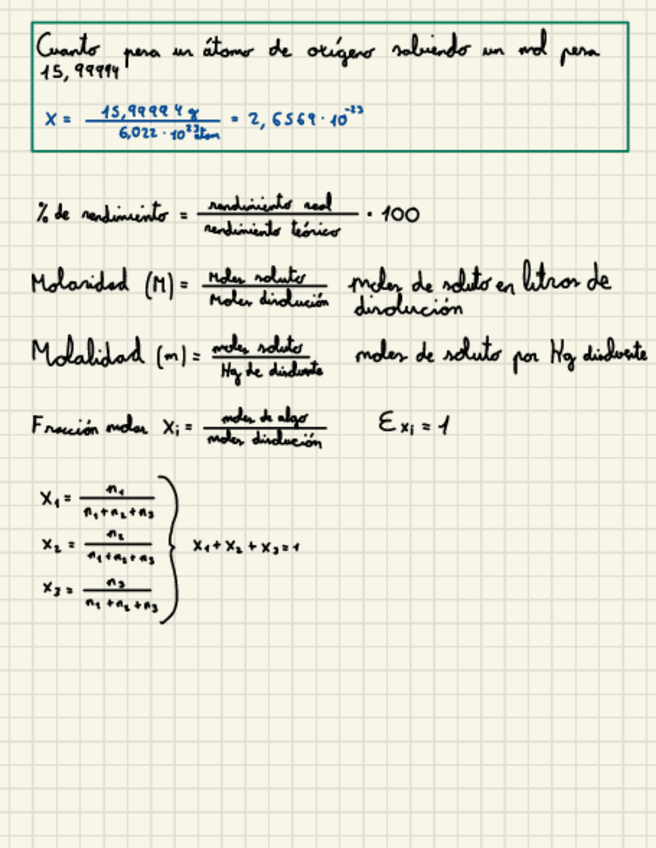 Cuanto pesa un átomo de oxígeno sabiendo un mol pesa
15,99994
X = 15,99994 g / 6,022 · 10²³ átom = 2,6569 · 10⁻²³
% de rendimiento = rendimiento real / rendimiento teórico · 100
Molaridad (M) = Moles soluto / Moles disolución moles de soluto en litros de
disolución
Molalidad (m) = moles soluto / Kg de disolvente moles de soluto por Kg disolvente
Fracción molar Xᵢ = moles de algo / moles disolución Ɛ xᵢ = 1
X₁ = n₁ / n₁ + n₂ + n₃
X₂ = n₂ / n₁ + n₂ + n₃ X₁ + X₂ + X₃ = 1
X₃ = n₃ / n₁ + n₂ + n₃